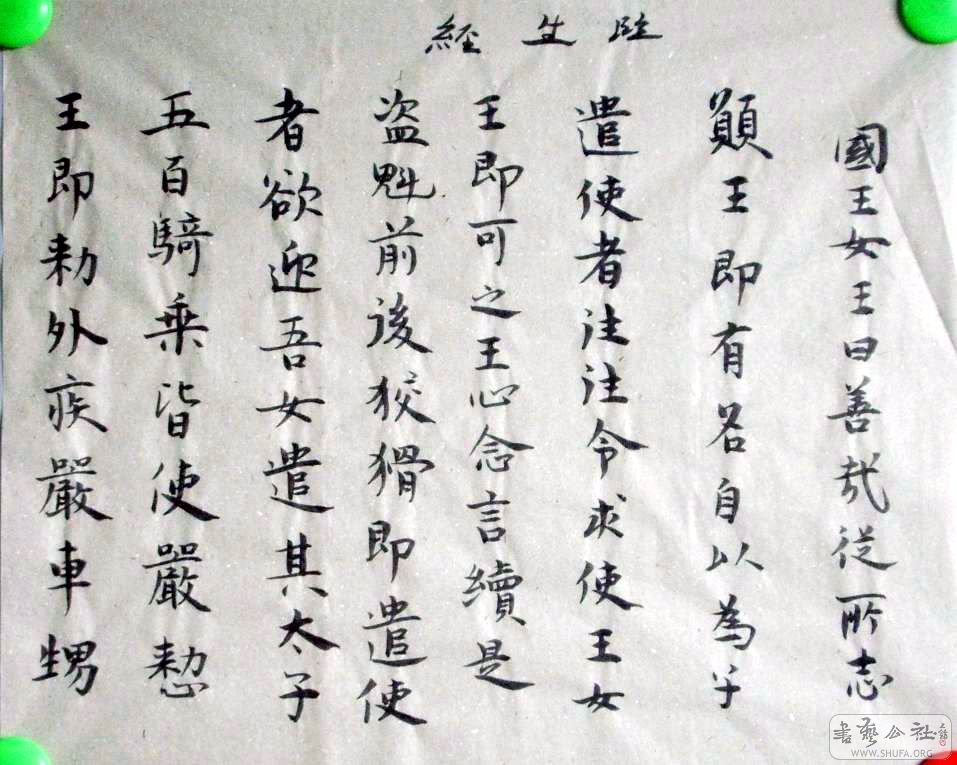 陞生經
國王女王曰善哉從所志
願王即有名自以為子
遣使者往往令求使王女
王即可之王心念言續是
盗魁前後狡猾即遣使
者欲迎吾女遣其太子
五百騎乘皆使嚴愸
王即勑外疾嚴車甥
書藝公社
WWW.SHUFA.ORG